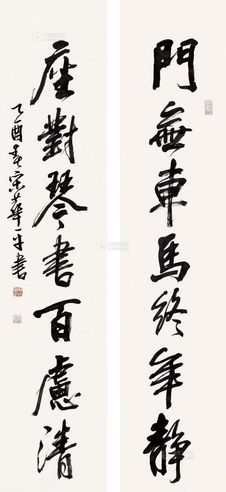 門無車馬終年靜
座對琴書百慮清
乙酉春宋華平書